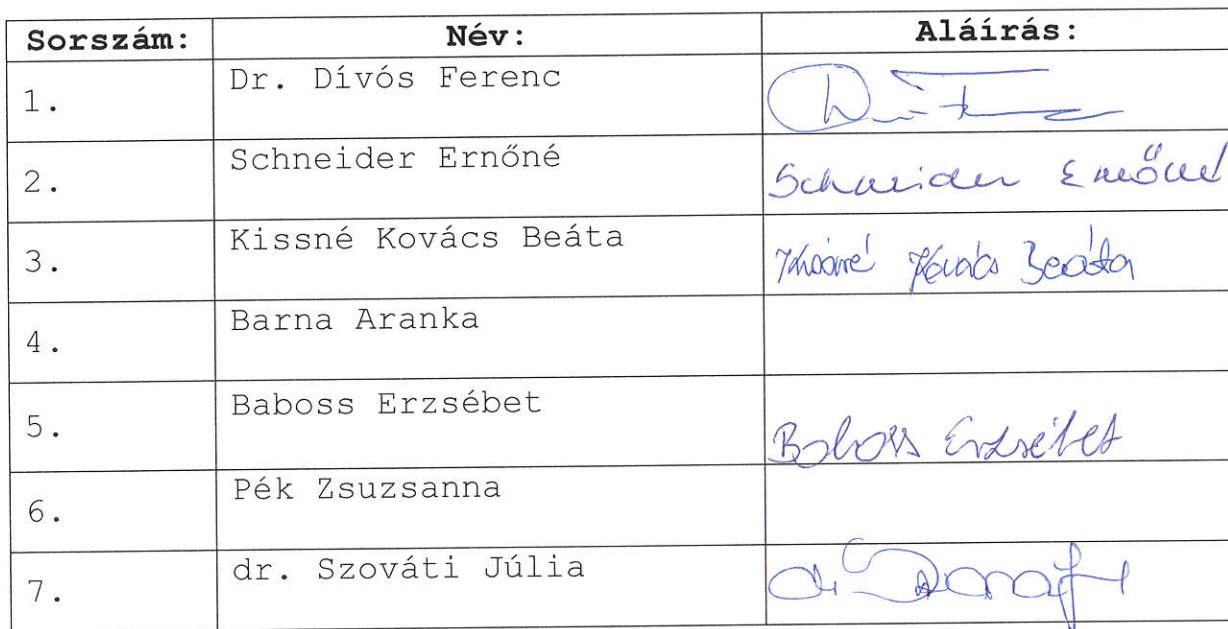 Sorszám: Név: Aláírás:
1. Dr. Dívós Ferenc
2. Schneider Ernőné Schneider Ernőné
3. Kissné Kovács Beáta Kissné Kovács Beáta
4. Barna Aranka
5. Baboss Erzsébet Baboss Erzsébet
6. Pék Zsuzsanna
7. dr. Szováti Júlia dr